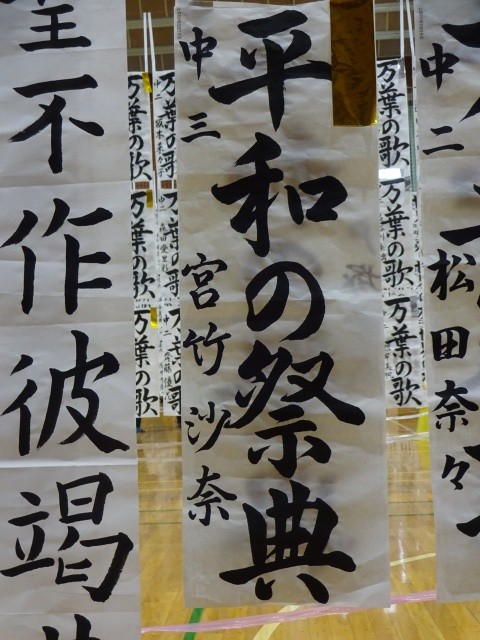 平和の祭典
中三 宮竹沙奈
中二 松田奈々
不作彼竭
万葉の歌
万葉の歌
万葉の歌
万葉の歌
万葉の歌
万葉の歌
万葉の歌
万葉の歌
万葉の歌